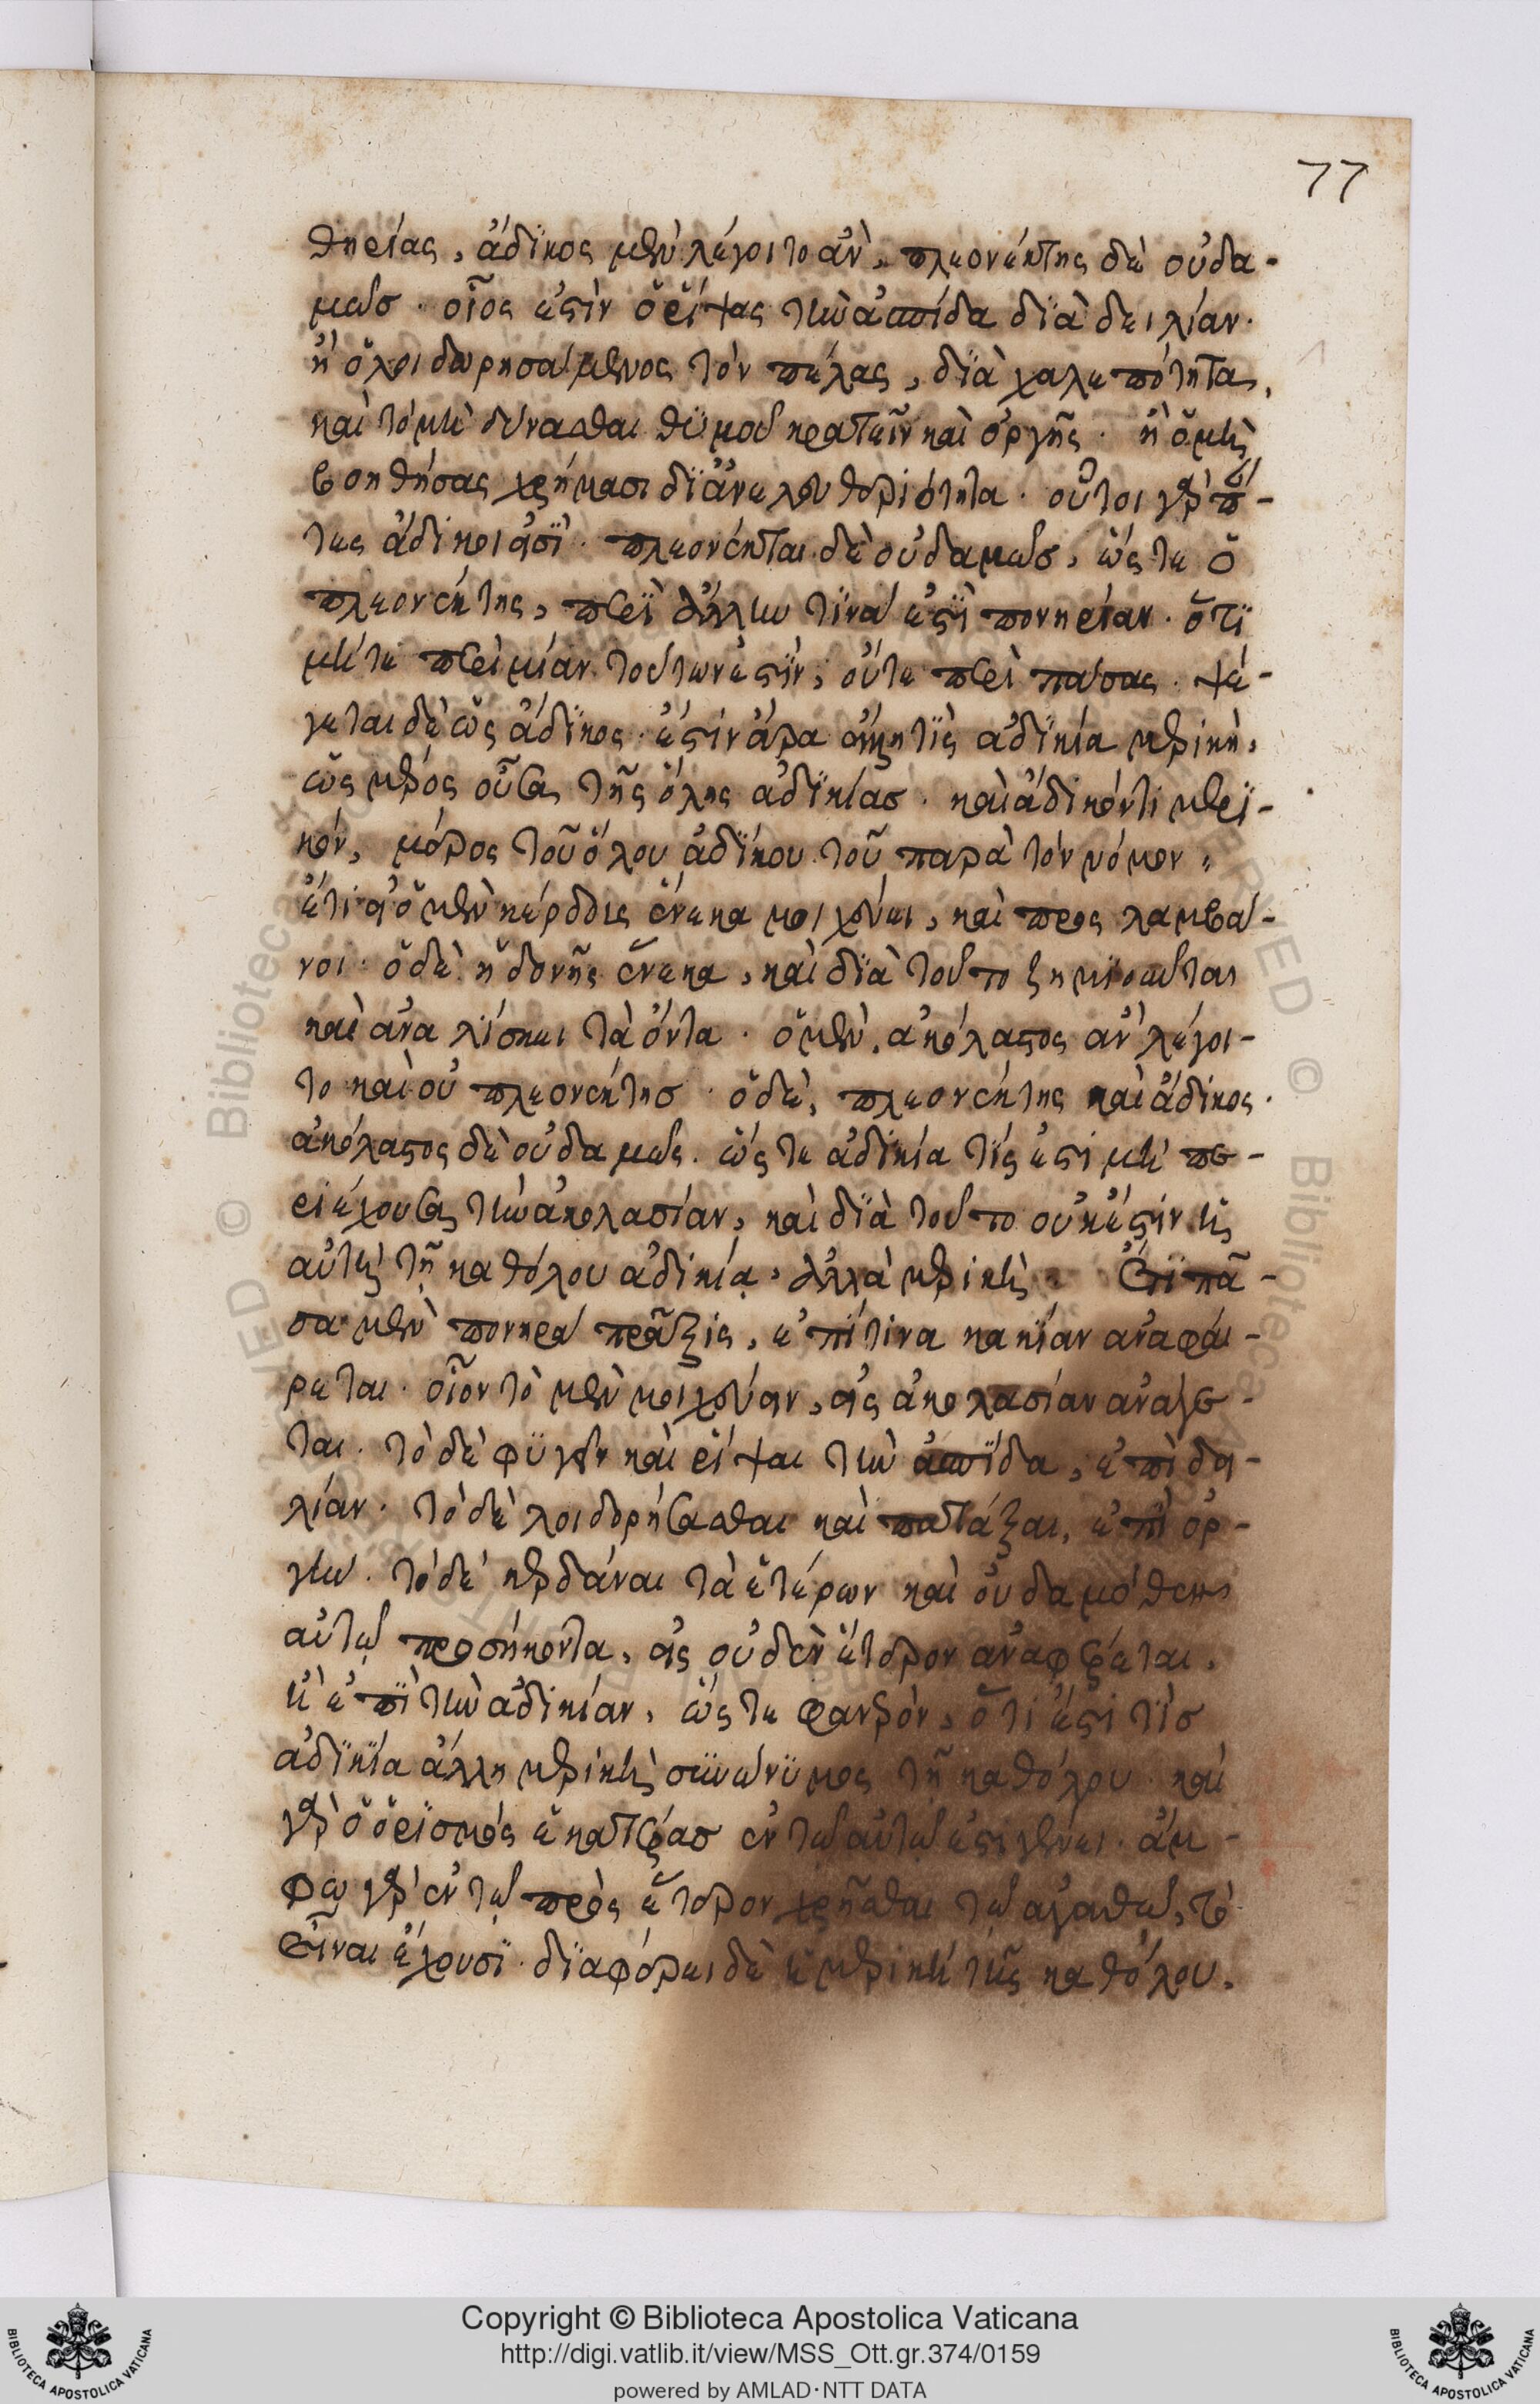 77
θηρίας, ἄδικος μὲν λέγοιτο ἂν, πλεονέκτης δὲ οὐδα-
μῶσ. οἷος ἐστὶν ὁ ῥίψας τὴν ἀσπίδα διὰ δειλίαν.
ἢ ὁ λοιδωρησάμενος τὸν πέλας, διὰ χαλεπότητα,
καὶ τὸ μὴ δύνασθαι θυμοῦ κρατεῖν καὶ ὀργῆς. ἢ ὁ μὴ
βοηθήσας χρήμασι δι' ἀνελευθεριότητα. οὗτοι γὰρ πά-
τες ἄδικοι εἰσὶ. πλεονέκται δὲ οὐδαμῶσ, ὥς τε ὁ
πλεονέκτης, περὶ ἄλλην τινά ἐστὶ πονηρίαν. ὅτι
μήτε περὶ μίαν τούτων ἐστὶν, οὔτε περὶ πάσας. ψέ-
γεται δὲ ὡς ἄδικος. ἐστὶν ἄρα καὶ τὶς ἀδικία μερικὴ,
ὡς μέρος οὖσα τῆς ὅλης ἀδικίασ. καὶ ἄδικόν τι μερι-
κόν, μέρος τοῦ ὅλου ἀδίκου τοῦ παρὰ τὸν νόμον.
ἔτι εἰ ὁ μὲν κέρδους ἕνεκα μοιχεύει, καὶ προς λαμβά-
νοι. ὁ δὲ ἡδονῆς ἕνεκα, καὶ διὰ τοῦτο ζημιοῦται
καὶ ἀναλίσκει τὰ ὄντα. ὁ μὲν, ἀκόλαστος ἂν λέγοι-
το καὶ οὐ πλεονέκτησ. ὁ δὲ, πλεονέκτης καὶ ἄδικος.
ἀκόλαστος δὲ οὐδαμῶς. ὥς τε ἀδικία τίς ἐστι μὴ πε-
ριέχουσα τὴν ἀκολασίαν, καὶ διὰ τοῦτο οὐκ ἔστιν ἡ
αὐτὴ τῇ καθόλου ἀδικίᾳ, ἀλλὰ μερικὴ. ἔτι πᾶ-
σα μὲν πονηρά πρᾶξις, ἐπί τινα κακίαν ἀναφέ-
ρεται. οἷον τὸ μὲν μοιχεύειν, εἰς ἀκολασίαν ἀνάγε-
ται. τὸ δὲ φυγεῖν καὶ ῥίψαι τὴν ἀσπίδα, ἐπὶ δει-
λίαν. τὸ δὲ λοιδορήσασθαι καὶ πατάξαι, ἐπὶ ὀρ-
γήν. τὸ δὲ κερδάναι τὰ ἑτέρων καὶ οὐδαμόθεν
αὐτῷ προσήκοντα, εἰς οὐδὲν ἕτερον ἀναφέρεται,
ἢ ἐπὶ τὴν ἀδικίαν, ὥς τε φανερὸν, ὅτι ἐστι τὶσ
ἀδικία ἄλλη μερικὴ συνώνυμος τῇ καθόλου. καὶ
γὰρ ὁ ὁρισμός ἑκατέρασ ἐν τῷ αὐτῷ ἐστι γένει. ἄμ-
φω γὰρ ἐν τῷ πρὸς ἕτερον χρῆσθαι τῷ ἀγαθῷ, τὸ
εἶναι ἔχουσι. διαφέρει δὲ ἡ μερικὴ τῆς καθόλου,
Copyright © Biblioteca Apostolica Vaticana
http://digi.vatlib.it/view/MSS_Ott.gr.374/0159
powered by AMLAD·NTT DATA